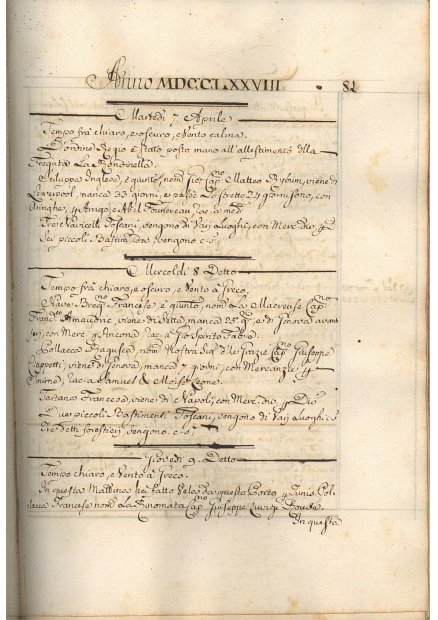 Anno MDCCLXXVIII. 81
Martedì 7 Aprile
Tempo frà chiaro, e oscuro, e Vento calma.
D'ordine Regio è stato posto mano all'allestimento della
Fregata La Rondinella.
Inglese, è giunto, nom. Capno Matteo viene di
Liverpool, manca 33 giorni, e passò Lo stretto 24 giorni sono, con
Aringhe, Arrigo, Abel
Tre Navicelli Toscani, vengono di Varj Luoghi, con Merc. div.
Sei piccoli Bastim. vengono c. s.
Mercoldì 8 Detto
Tempo frà chiaro, e oscuro, e Vento à Greco.
Nave Francese è giunto, nom. La Capno
viene di Sette, manca 25 g. e di Genova
con Merc. Ancona,
Pollacca Ragusea, nom. Nostra Sig. delle Grazie Capno Giuseppe
viene di Genova, manca giorni, con Mercanzie
Smirne, Samuel & Moise Leone.
Tartana Francese, viene di Napoli, con Merc. div.
Due piccoli Bastimenti Toscani, vengono di Varj Luoghi c. s.
Tre detti forestieri, vengono c. s.
Giovedì 9 Detto
Tempo chiaro, e Vento à Greco.
In questa Mattina hà fatto Vela da questo Porto Tunis Pol-
lacca Francese nom. La Renomata Capno Giuseppe Luigi
In questa